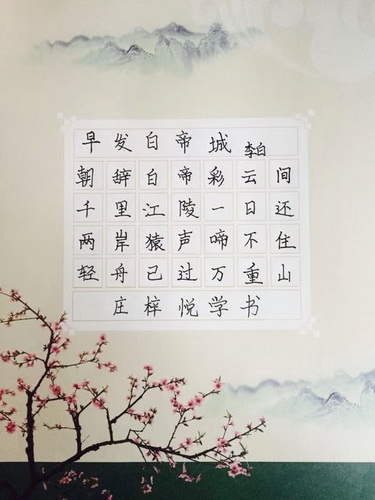 早发白帝城 李白
朝辞白帝彩云间
千里江陵一日还
两岸猿声啼不住
轻舟已过万重山
庄梓悦学书